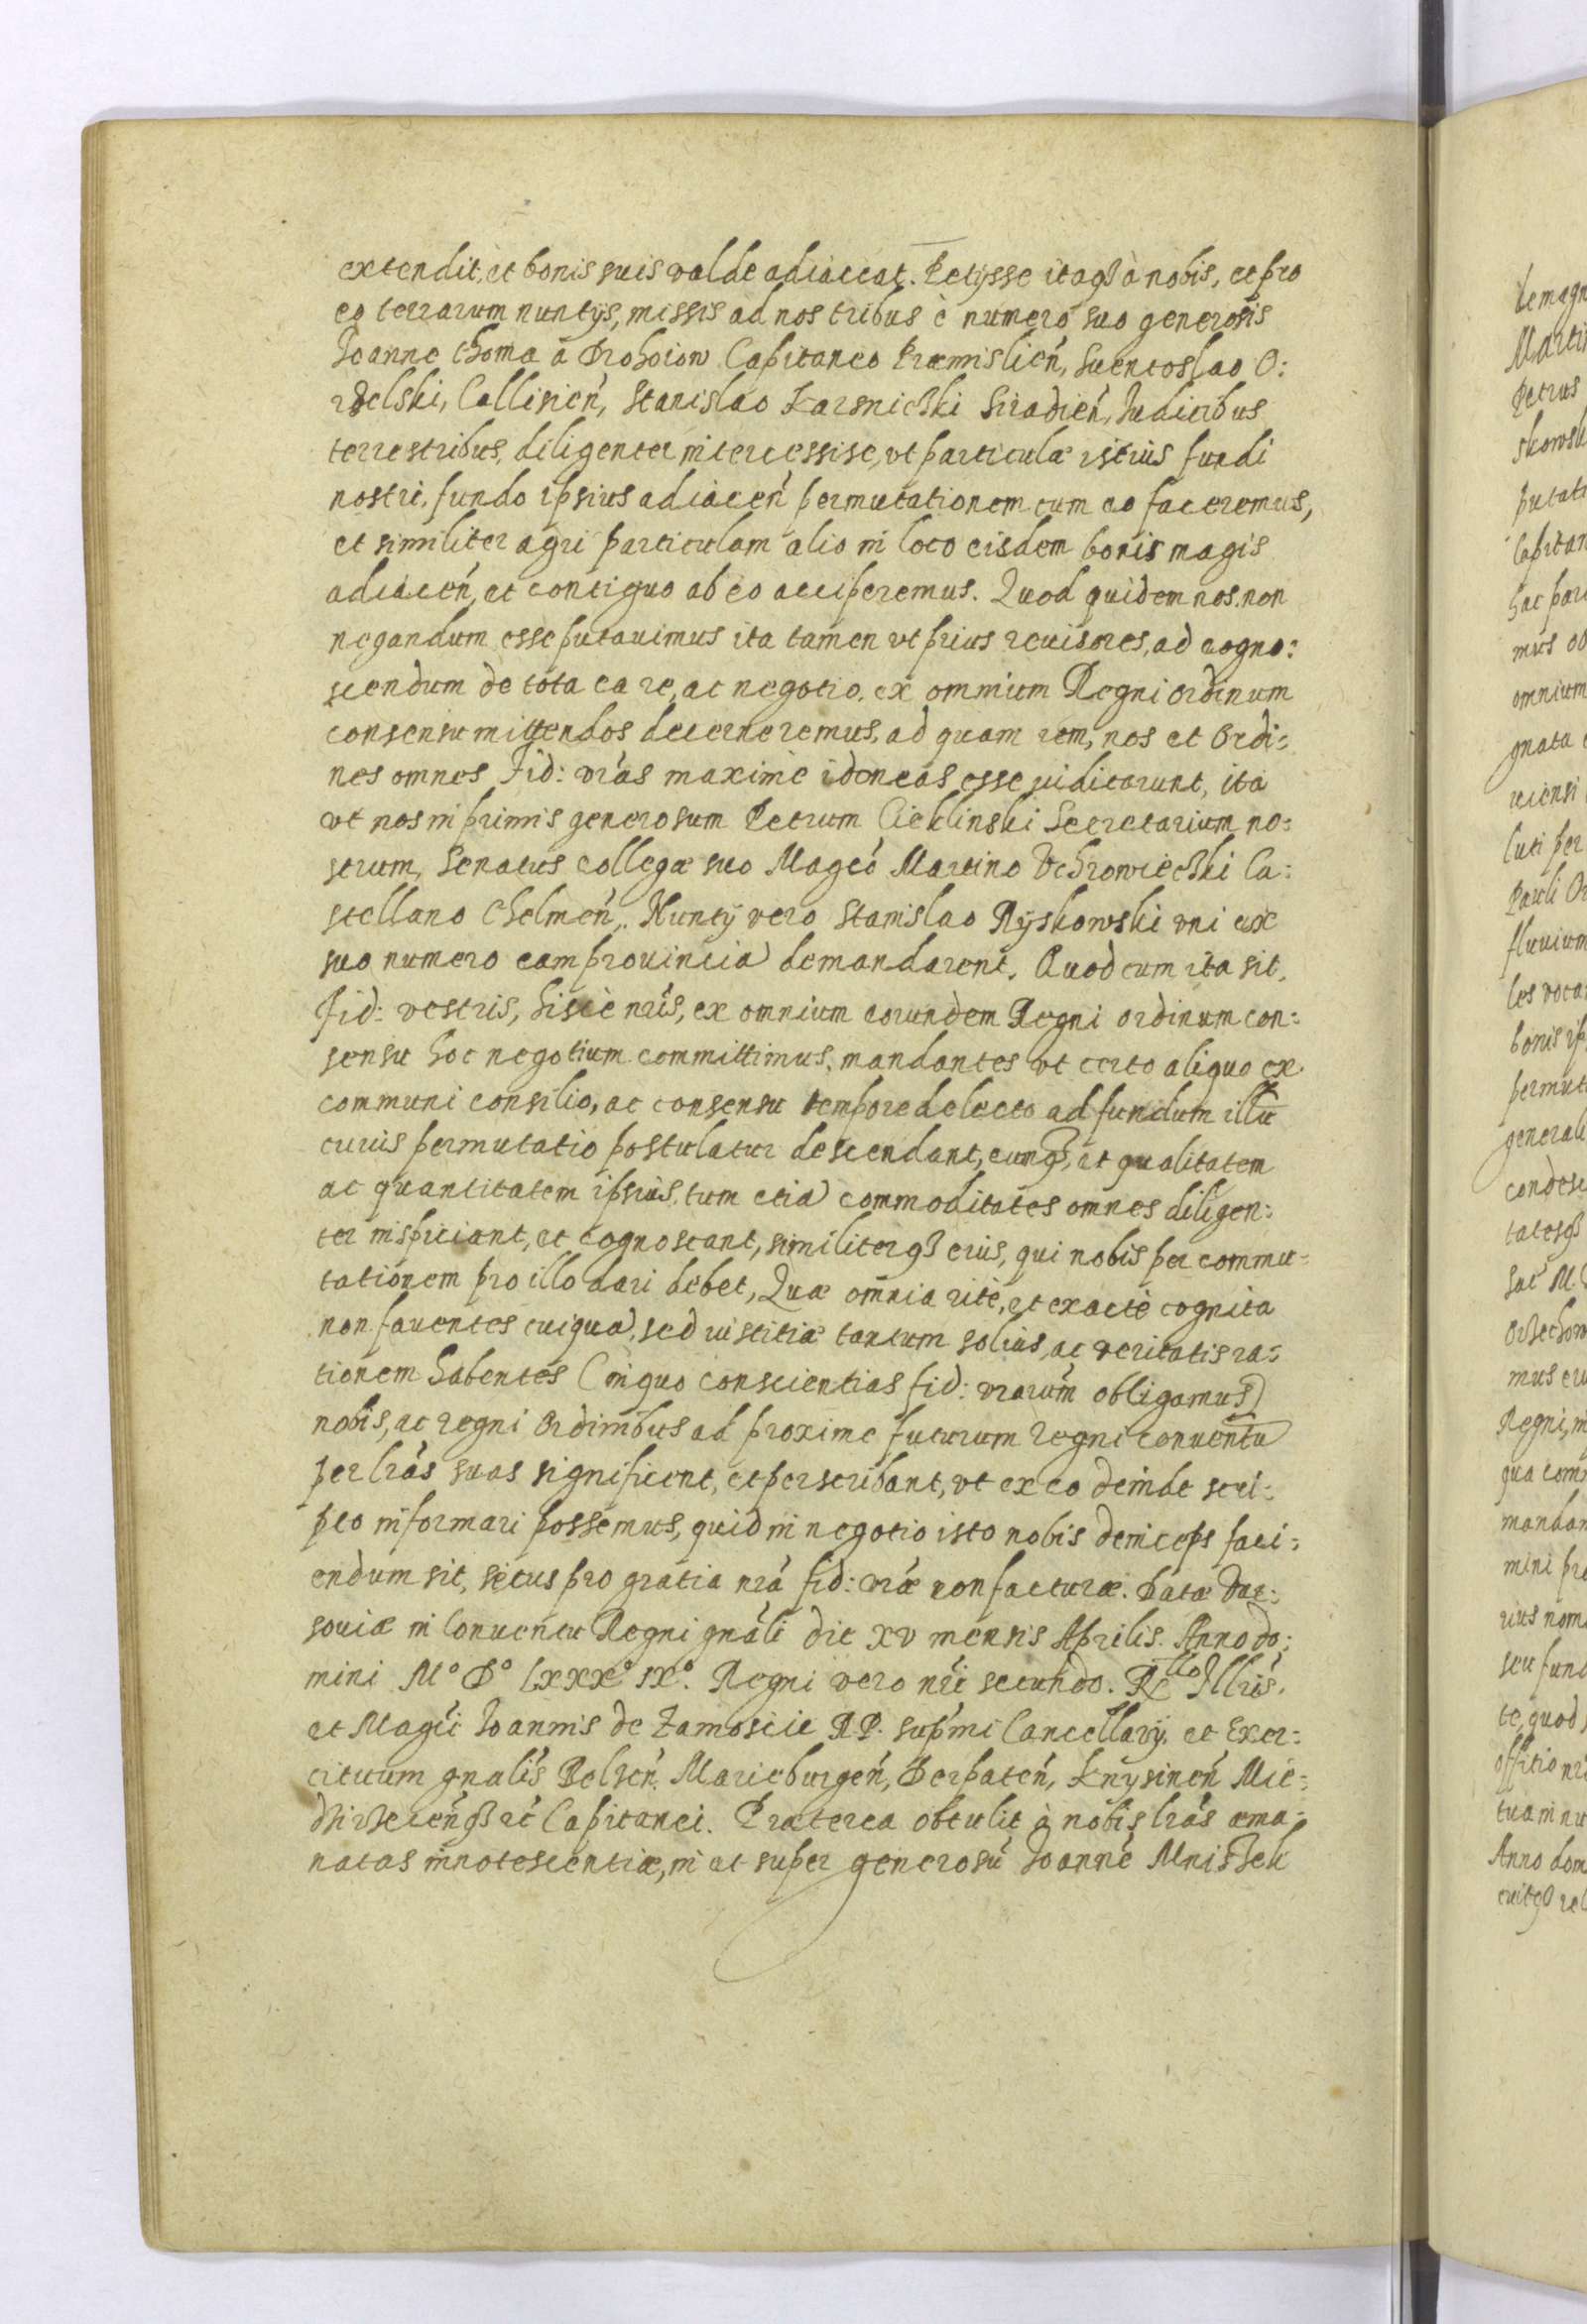 extendit, et bonis suis valde adiaceat. Petijsse itaqȝ à nobis, et pro
eo terrarum nuntijs, missis ad nos tribus è numero suo generosis
Ioanne Thoma a Drohoiow Capitaneo Præmislień, Suentoslao O:
rzelski, Callisień, Stanislao Karsnicki Siradień, Iudicibus
terrestribus, diligenter intercessisse, vt particulæ istius fundi
nostri, fundo ipsius adiaceń permutationem cum eo faceremus,
et similiter agri particulam alio in loco eisdem bonis magis
adiaceń, et contiguo ab eo acciperemus. Quod quidem nos non
negandum esse putauimus ita tamen vt prius reuisores, ad cogno:
scendum de tota ea re, ac negotio, ex omnium Regni ordinum
consensu mittendos decerneremus, ad quam rem, nos et Ordi:
nes omnes Fid: vrás maximè idoneas esse iudicarunt, ita
vt nos inprimis generosum Petrum Cieklinski Secretarium no:
strum, Senatus collegæ suo Magcó Martino Vchrowiecki Ca:
stellano Chelmeń. Nuntij vero Stanislao Ryskowski vni ex
suo numero eam prouincia demandarent. Quod cum ita sit,
Fid: vestris, hisce nrís, ex omnium eorundem Regni ordinum con:
sensu hoc negotium committimus, mandantes vt certo aliquo ex
communi consilio, ac consensu tempore delecto ad fundum illū
cuius permutatio postulatur descendant, eumqȝ, et qualitatem
ac quantitatem ipsius, tum etia commoditates omnes diligen:
ter inspiciant, et cognoscant, similiterqȝ eius, qui nobis per commu:
tationem pro illo dari debet, Quæ omnia ritè, et exactè cognita
non fauentes cuiqua, sed iustitiæ tantum solius, ac veritatis ra:
tionem habentes (in quo conscientias fid: vrarúm obligamus)
nobis, ac regni Ordinibus ad proxime futurum Regni conuentū
per lrás suas significent, et perscribant, vt ex eo deinde scri:
pto informari possemus, quid in negotio isto nobis deinceps faci:
endum sit, secus pro gratia nrá fid: vræ non facturæ. Datæ Var:
souiæ in Conuentu Regni gnáli die XV mensis Aprilis. Anno do:
mini Mº Dº LXXXº IXº. Regni vero nrí secundo. Rello Illris.
et Magci Ioannis de Zamoscie R.P. supmi Cancellarij, et Exer:
cituum gnalis Belzeń, Marieburgeń, Derpateń, Knysineń Mie:
dzirzeceńqȝ et Capitanei. Præterea obtulit à nobis lrás ema:
natas innotescentiæ, in et super generosū Ioanne Mniszek